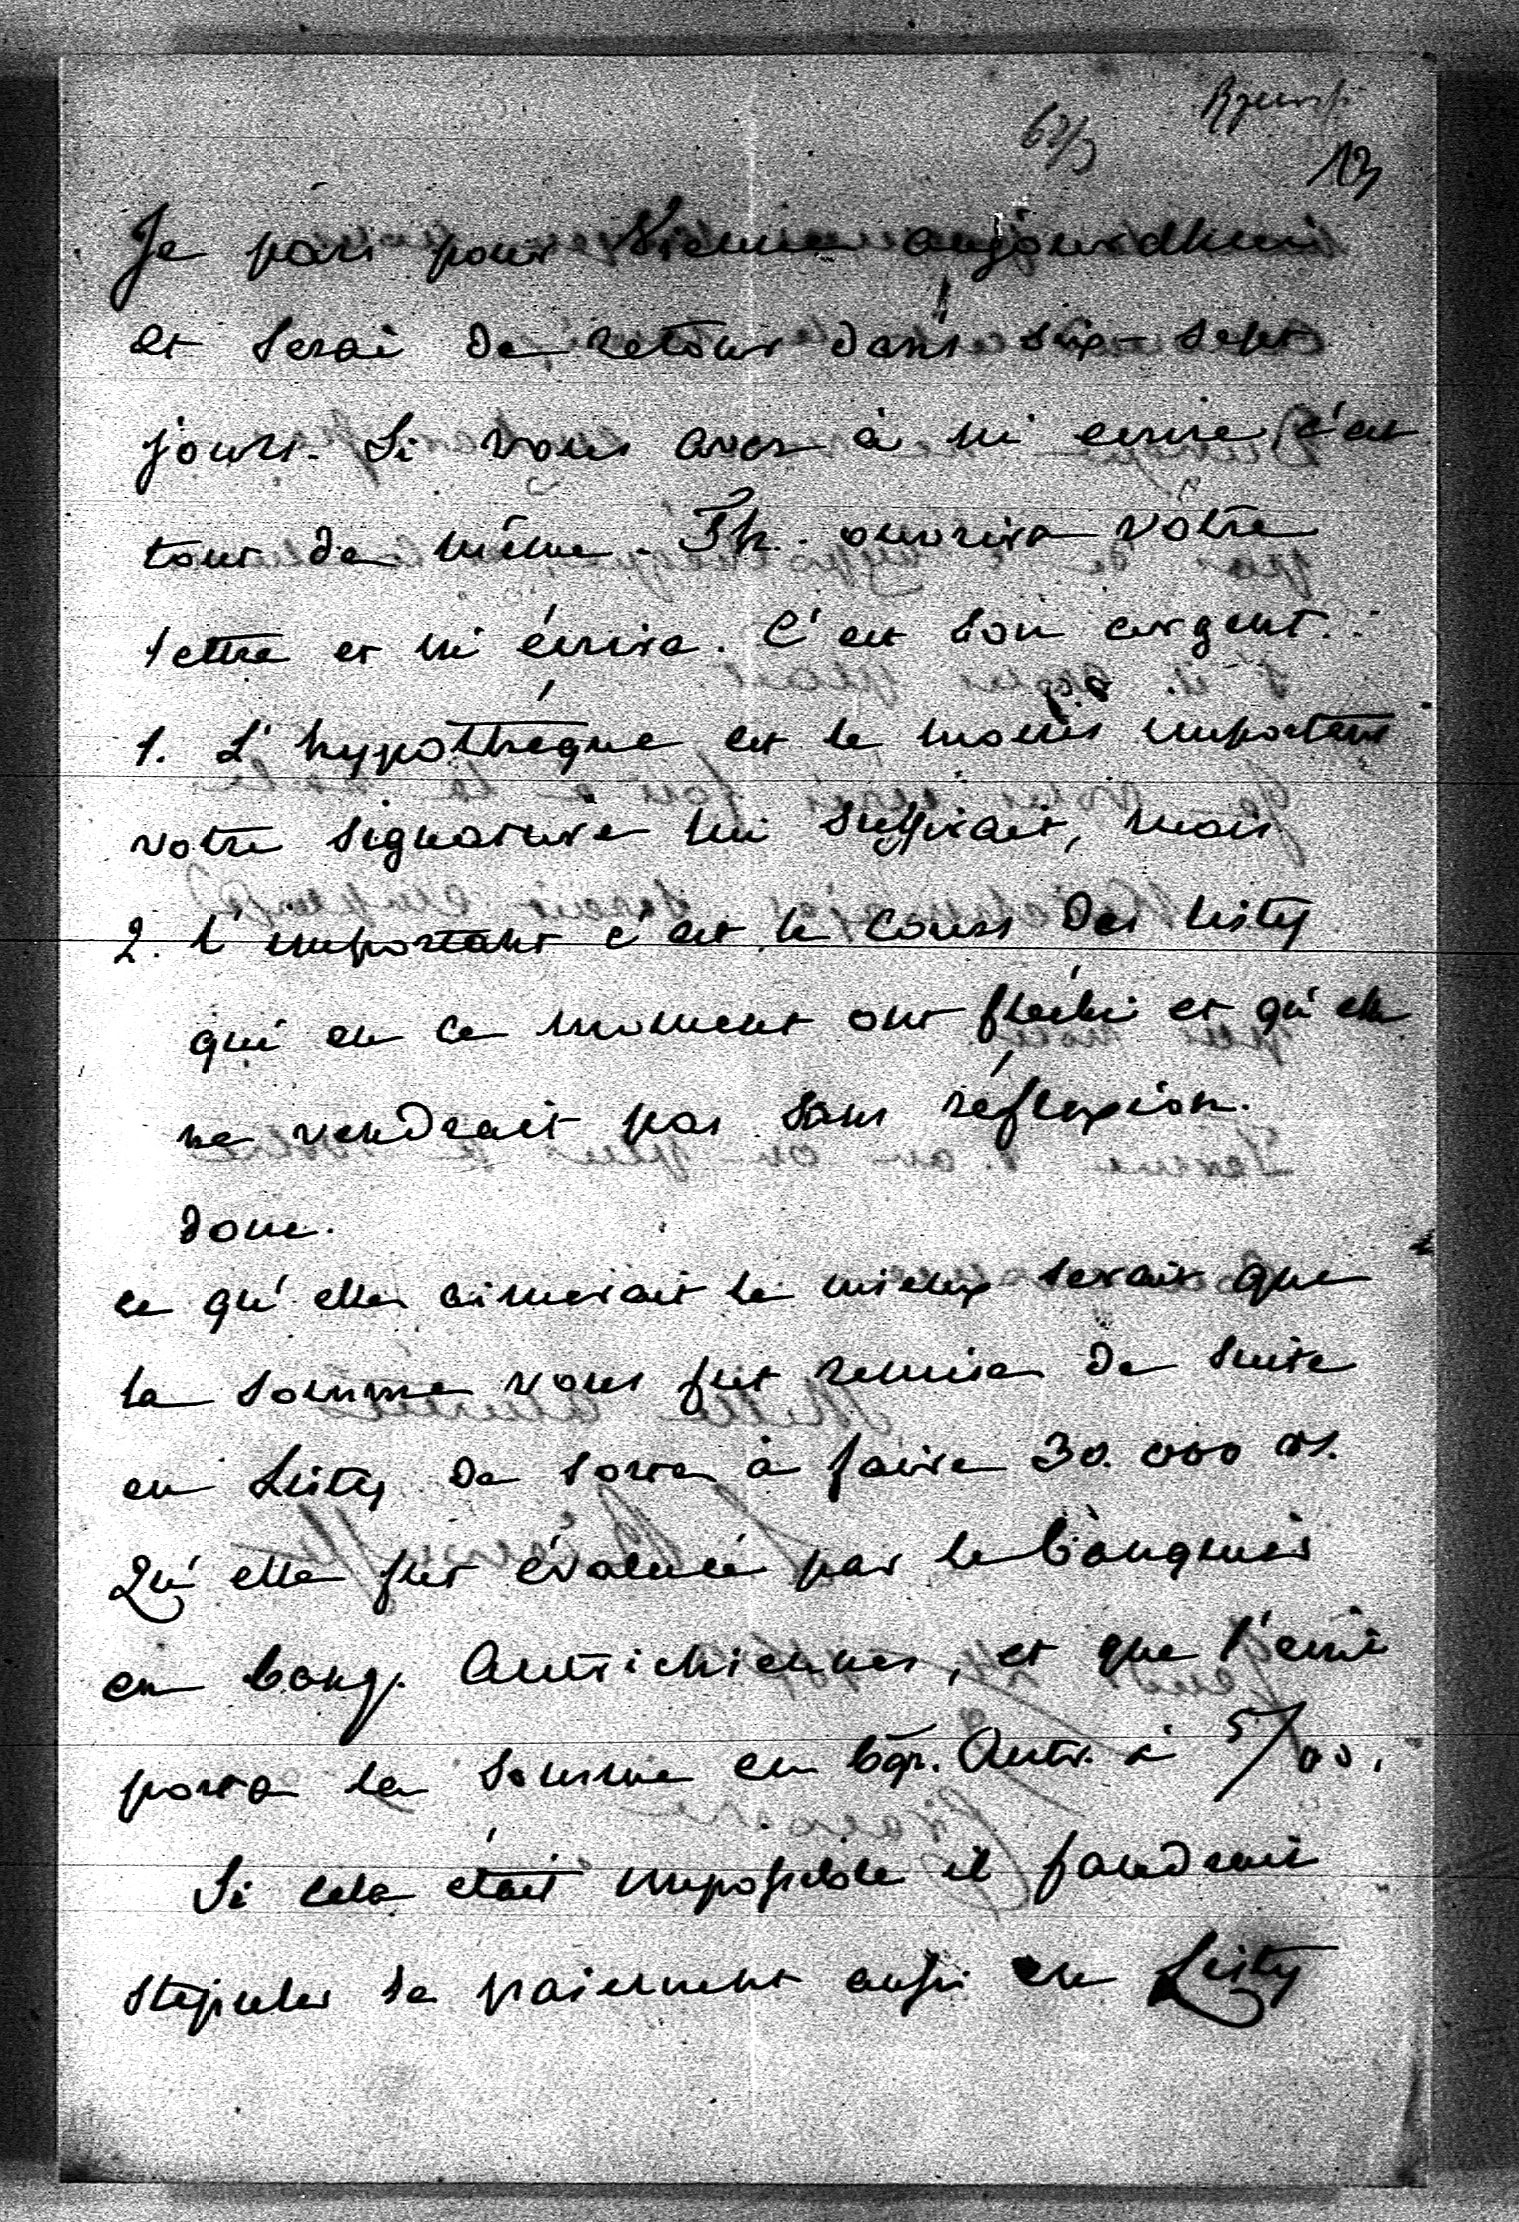 13
Je pars pour Vienne aujourdhui
et serai de retour dans six-sept
jours. Si vous avez à m'ecrire c'est
tout de même. Th. ouvrira votre
lettre et m'écrira. C'est son argent.
1. L'hypothéque est le moins important
votre signature lui suffirait, mais
2. l'important c'est le cours des Listy
qui en ce moment ont flechi et qu'elle
ne vendrait pas sans réflexion.
donc.
ce qu'elle aimerait le mieux serait que
la somme vous fut remise de suite
en Listy de sorte à faire 30.000 rs.
Qu'elle fut évaluée par le banquier
en banq. Autrichiennes, et que l'ecrit
porta la somme en bq. Autr. à 5/00.
Si cela était impossible il faudrait
stipuler le paiement aussi en Listy